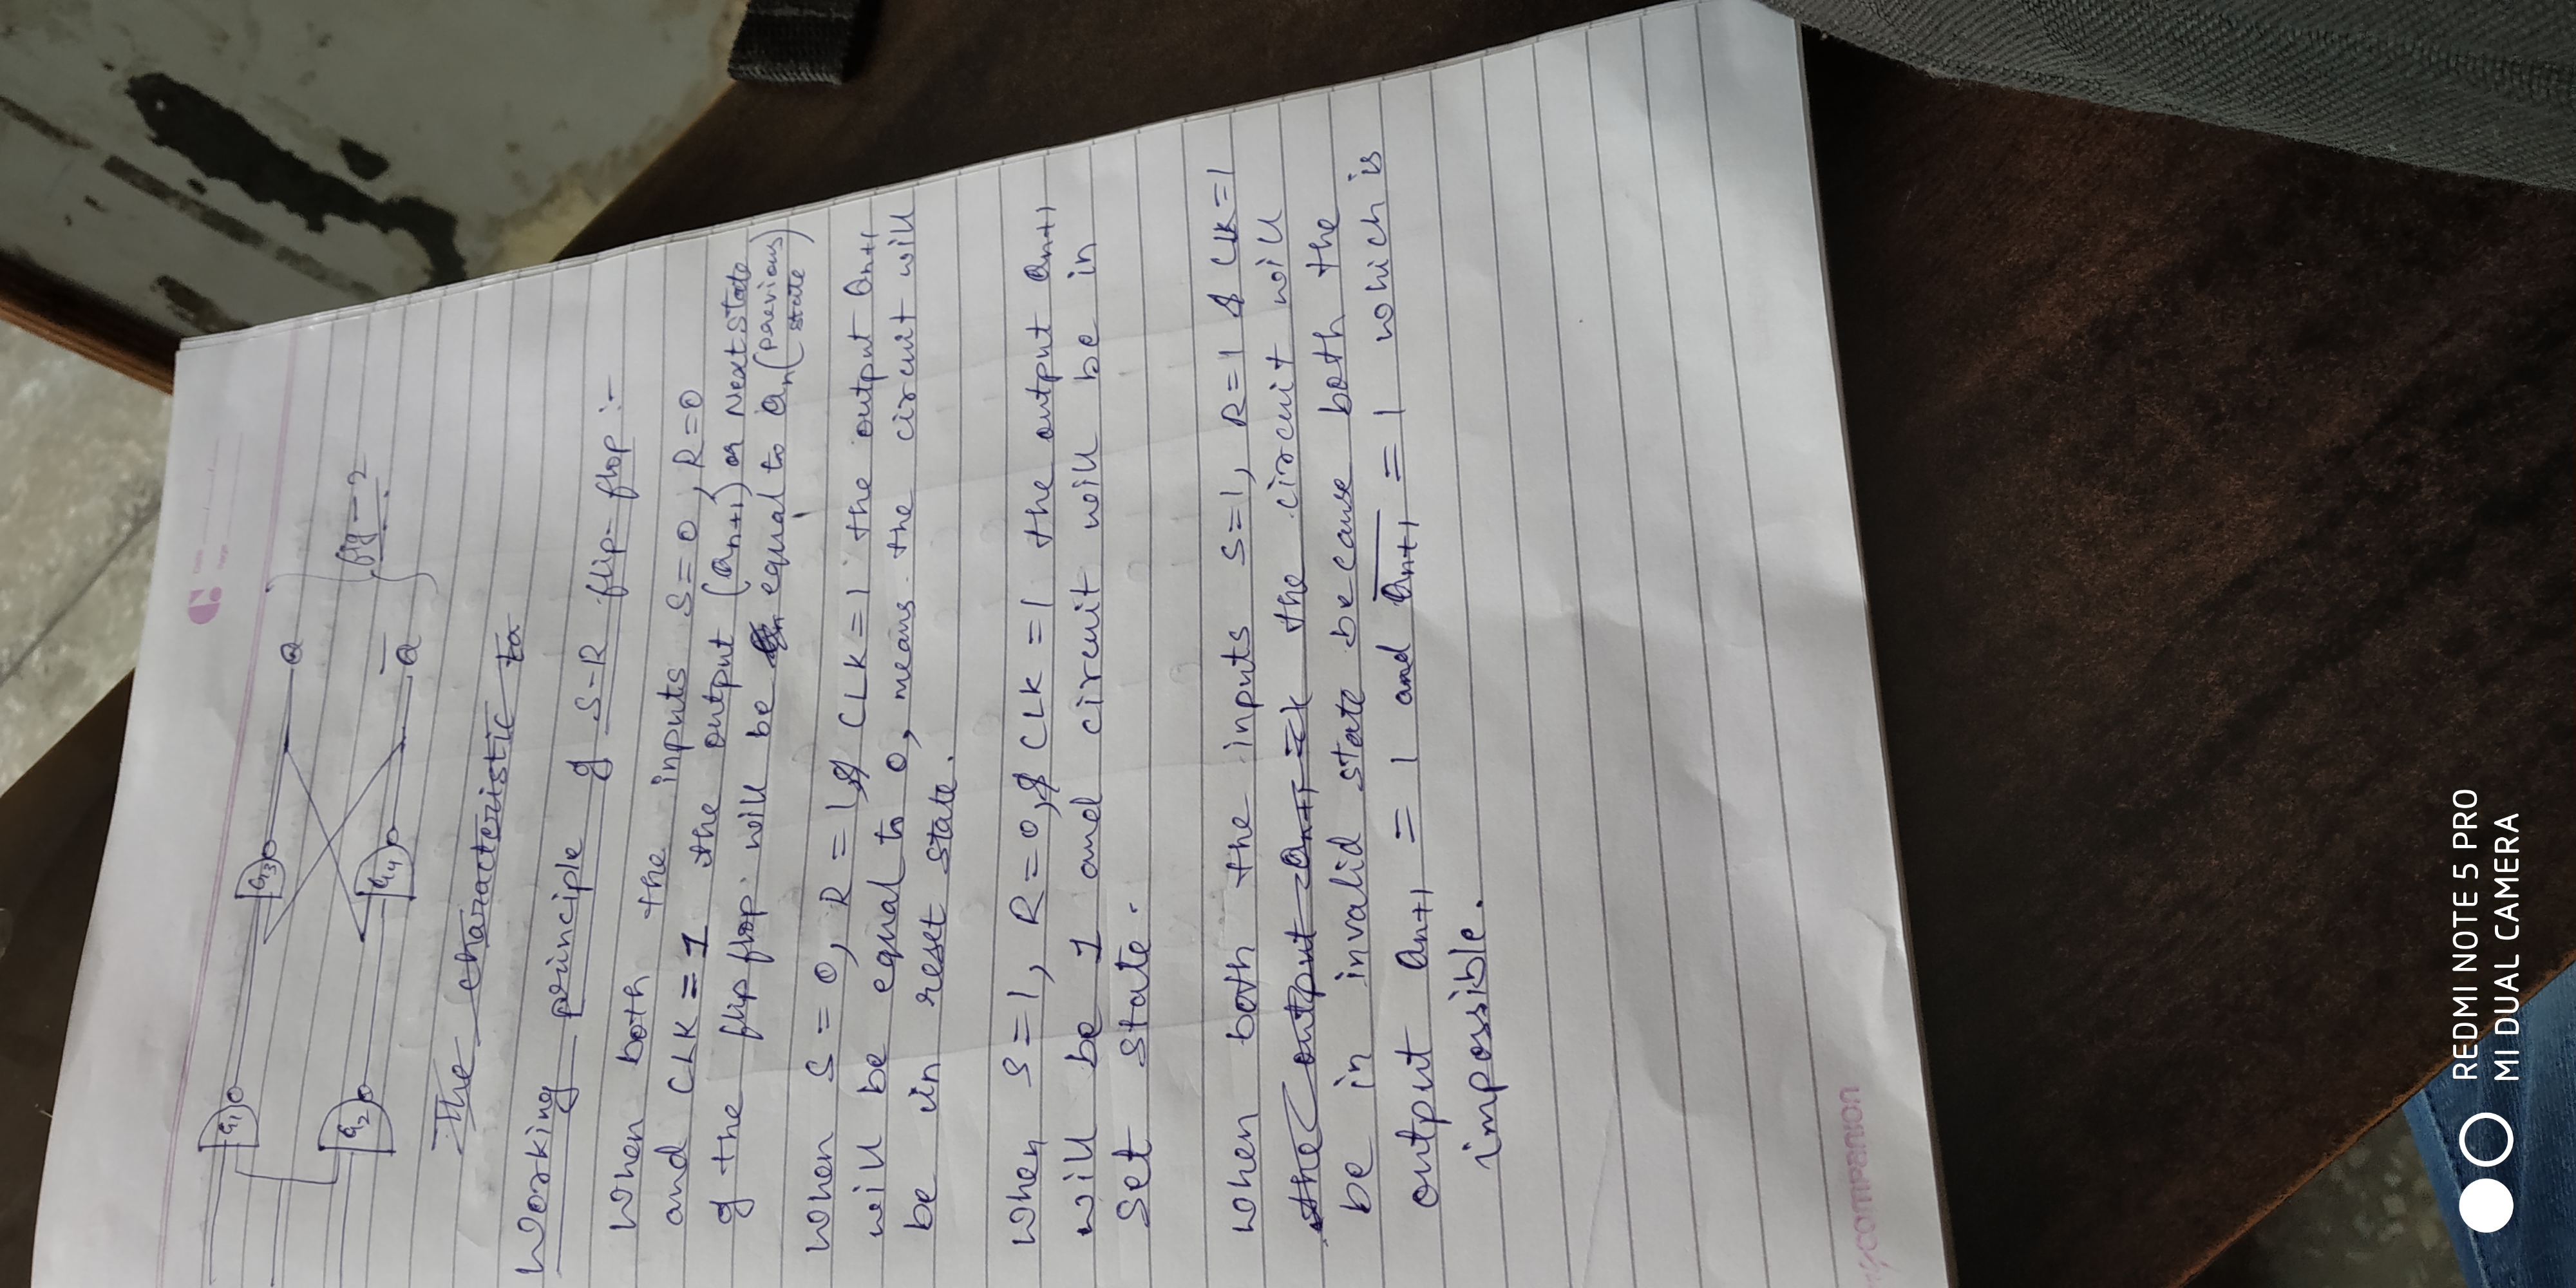 G1
G3
Q
G2
G4
Q̅
fig-2
The characteristic ta
Working principle of S-R flip-flop :-
When both the inputs S=0, R=0
and CLK=1 the output (Qn+1) or Next state
of the flip flop will be equal to Qn (previous state)
When S=0, R=1, & CLK=1 the output Qn+1
will be equal to 0, means the circuit will
be in reset state.
When S=1, R=0, & CLK=1 the output Qn+1
will be 1 and circuit will be in
set state.
When both the inputs S=1, R=1 & CLK=1
the output Qn+1 = the circuit will
be in invalid state because both the
output Qn+1 = 1 and Q̅n+1 = 1 which is
impossible.
companion
REDMI NOTE 5 PRO
MI DUAL CAMERA